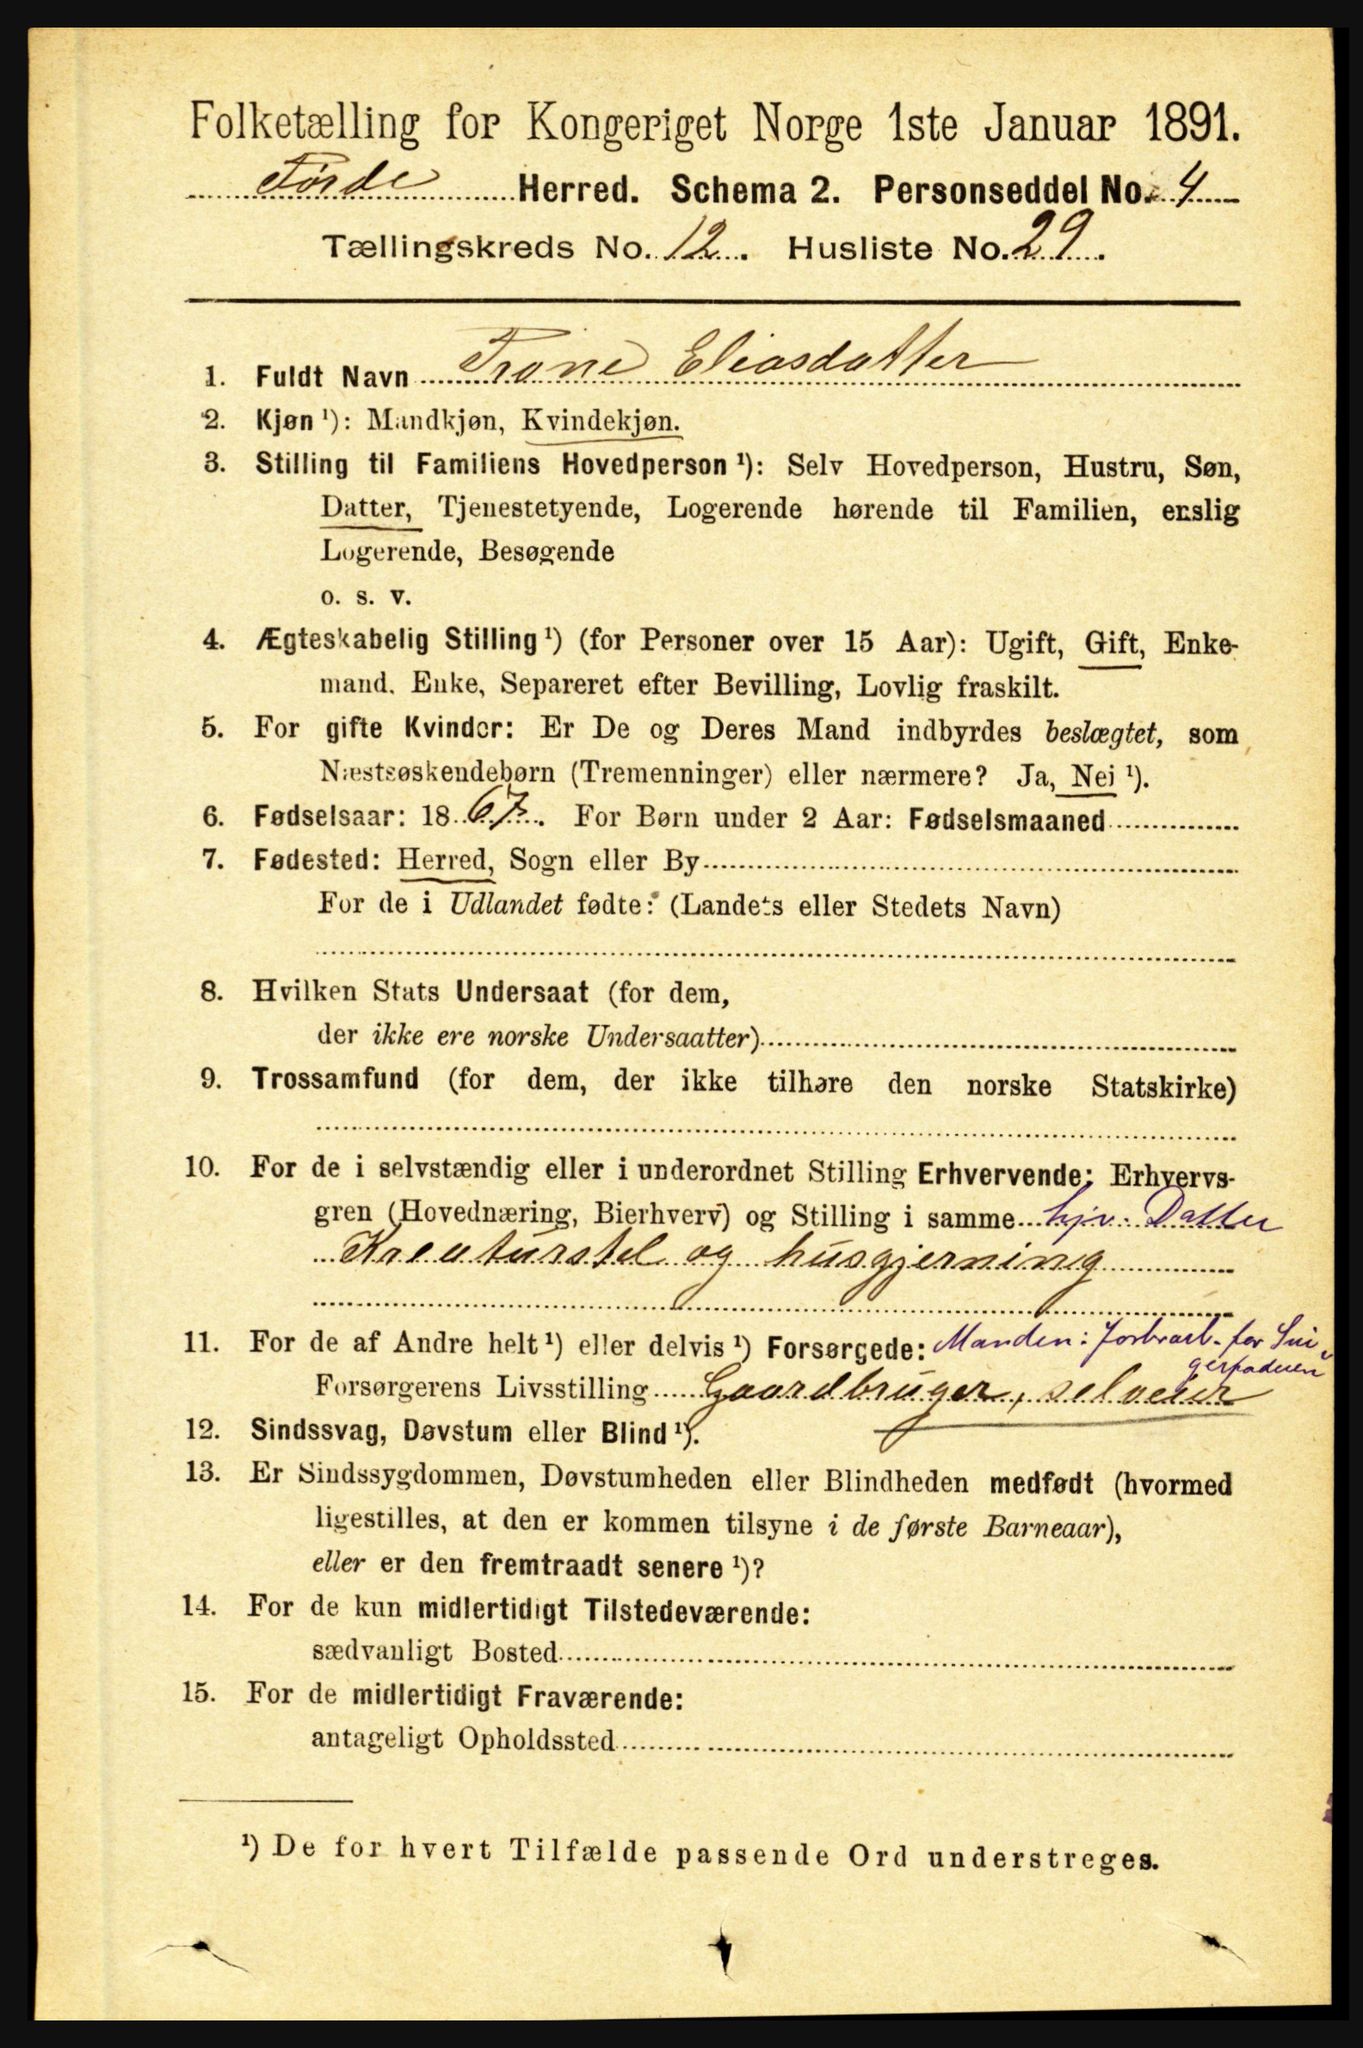 Folketælling for Kongeriget Norge 1ste Januar 1891.
Førde Herred. Schema 2. Personseddel No. 4
Tællingskreds No. 12. Husliste No. 29.
1. Fuldt Navn Trane Eliasdatter
2. Kjøn ¹): Mandkjøn, Kvindekjøn.
3. Stilling til Familiens Hovedperson ¹): Selv Hovedperson, Hustru, Søn,
Datter, Tjenestetyende, Logerende hørende til Familien, enslig
Logerende, Besøgende
o. s. v.
4. Ægteskabelig Stilling ¹) (for Personer over 15 Aar): Ugift, Gift, Enke-
mand, Enke, Separeret efter Bevilling, Lovlig fraskilt.
5. For gifte Kvinder: Er De og Deres Mand indbyrdes beslægtet, som
Næstsøskendebørn (Tremenninger) eller nærmere? Ja, Nei ¹).
6. Fødselsaar: 1867. For Børn under 2 Aar: Fødselsmaaned
7. Fødested: Herred, Sogn eller By
For de i Udlandet fødte: (Landets eller Stedets Navn)
8. Hvilken Stats Undersaat (for dem,
der ikke ere norske Undersaatter)
9. Trossamfund (for dem, der ikke tilhøre den norske Statskirke)
10. For de i selvstændig eller i underordnet Stilling Erhvervende: Erhvervs-
gren (Hovednæring, Bierhverv) og Stilling i samme hjv. Datter
Kreaturstel og husgjerning
11. For de af Andre helt ¹) eller delvis ¹) Forsørgede: Manden: for Svi-
gerfaderen
Forsørgerens Livsstilling Gaardbruger, selveier
12. Sindssvag, Døvstum eller Blind ¹).
13. Er Sindssygdommen, Døvstumheden eller Blindheden medfødt (hvormed
ligestilles, at den er kommen tilsyne i de første Barneaar),
eller er den fremtraadt senere ¹)?
14. For de kun midlertidigt Tilstedeværende:
sædvanligt Bosted
15. For de midlertidigt Fraværende:
antageligt Opholdssted
¹) De for hvert Tilfælde passende Ord understreges.